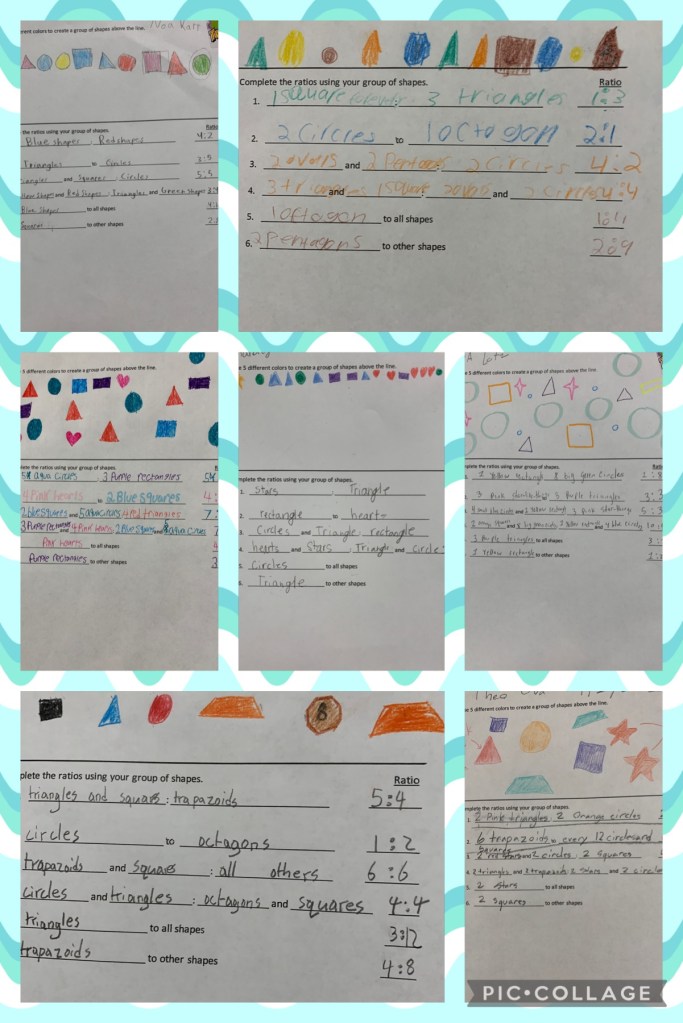 rent colors to create a group of shapes above the line.
the ratios using your group of shapes.
Blue shapes : Red shapes 4:2
Triangles to Circles 3:5
and Squares : Circles 5:5
Blue Shapes to all shapes
to other shapes
Complete the ratios using your group of shapes.
Ratio
1. 1 square 3 triangles 1:3
2. 2 Circles to 1 octogon 2:1
3. 2 ovals and 2 Pentagons 2 Circles 4:2
4. 3 triangles and 1 square 2 ovals and 2 Circles 4:4
5. 1 octogon to all shapes
6. 2 Pentagons to other shapes 2:9
e 5 different colors to create a group of shapes above the line.
lete the ratios using your group of shapes.
5 aqua circles : 3 Purple rectangles
4 Pink hearts to 2 Blue Squares
2 blue Squares and 5 aqua circles 4 red triangles
3 Purple rectangles and 4 Pink hearts 2 Blue Squares and 5 aqua Circles
Pink hearts to all shapes
Purple rectangles to other shapes
e 5 different colors to create a group of shapes above the line.
mplete the ratios using your group of shapes.
1. Stars : Triangle
2. rectangle to heart
3. Circles and Triangle : rectangle
4. hearts and Stars : Triangle and circle
5. Circles to all shapes
Triangle to other shapes
e 5 different colors to create a group of shapes above the line.
plete the ratios using your group of shapes.
2 Yellow rectangles 8 big Green Circles
3 Purple triangles to all shapes
2 Yellow rectangle to other shapes
8
plete the ratios using your group of shapes.
Ratio
triangles and squares : trapazoids 5:4
circles to octagons 1:2
trapazoids and squares : all others 6:6
circles and triangles : octagons and squares 4:4
triangles to all shapes 3:12
trapazoids to other shapes 4:8
Theo
e 5 different colors to create a group of shapes above the line.
mplete the ratios using your group of shapes.
1. 2 Pink triangles : 2 Orange circles
2. 6 trapazoids every 12 circles and squares
3. 2 circles : 2 squares
4. 2 triangles and 2 trapazoids 2 stars and 2 circle
5. 2 stars to all shapes
6. 2 squares to other shapes
PIC•COLLAGE